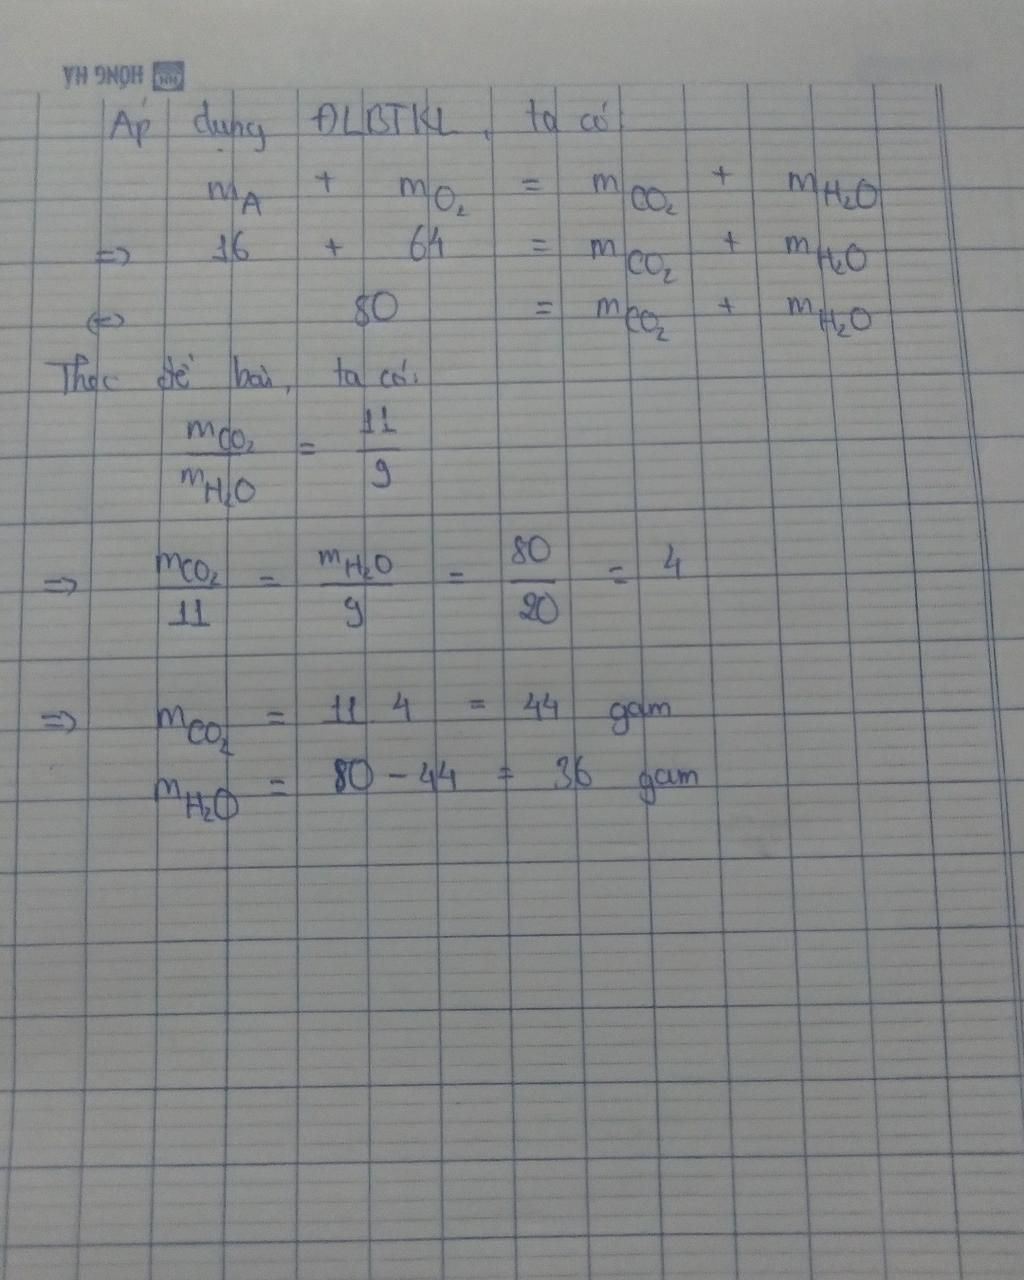 HONG HA
Áp dụng ĐLBTKL, ta có
mA + mO₂ = mCO₂ + mH₂O
=> 16 + 64 = mCO₂ + mH₂O
<=> 80 = mCO₂ + mH₂O
Theo đề bài, ta có:
mCO₂/mH₂O = 11/9
=> mCO₂/11 = mH₂O/9 = 80/20 = 4
=> mCO₂ = 11 4 = 44 gam
mH₂O = 80 - 44 = 36 gam